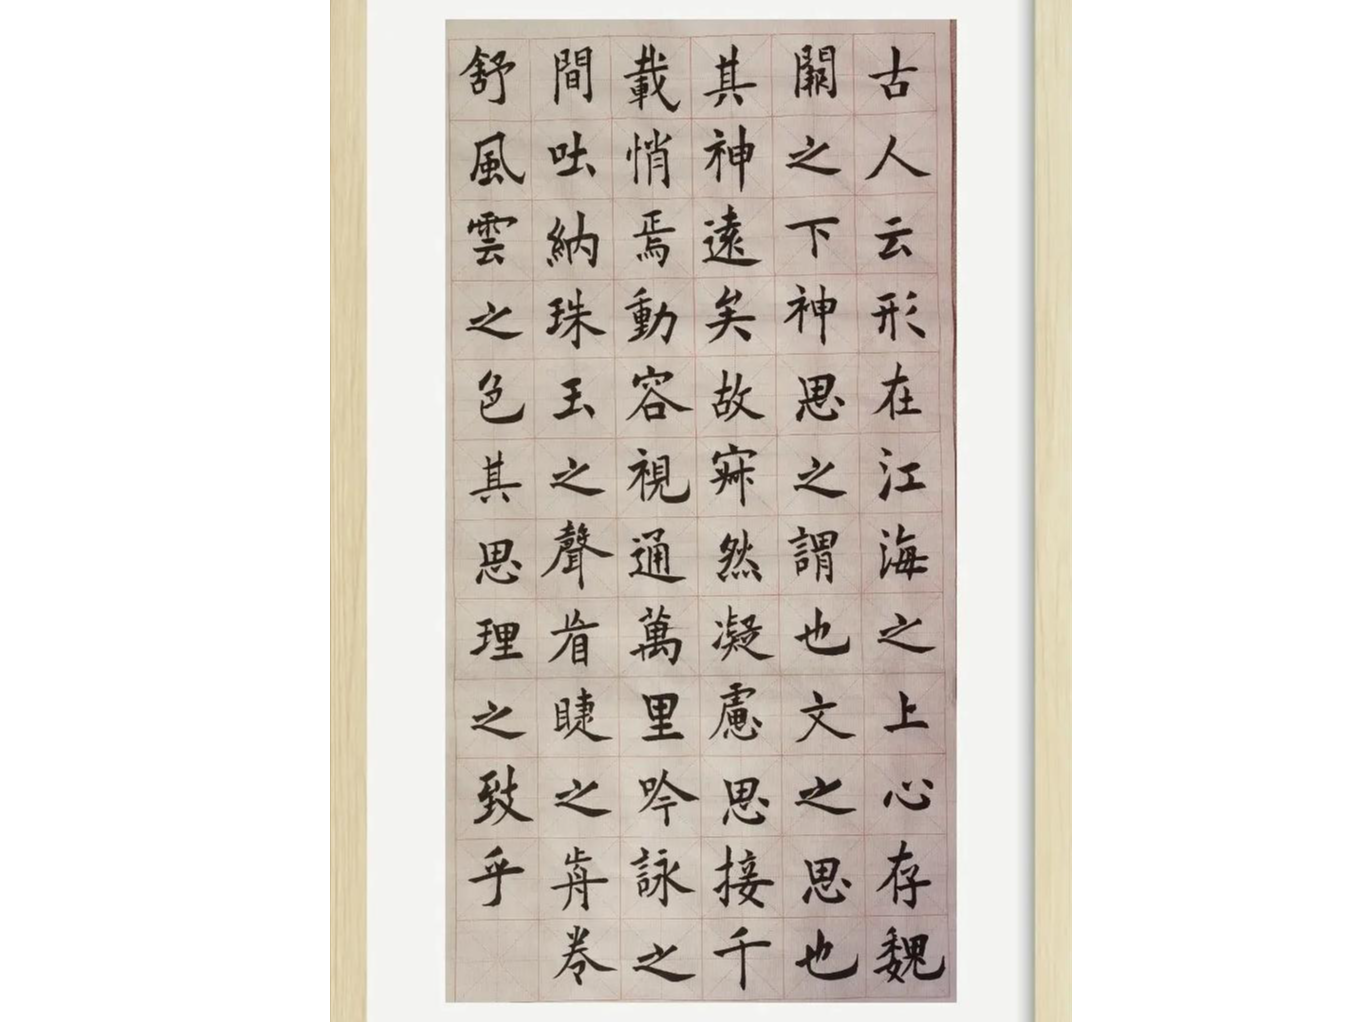 古人云形在江海之上心存魏
闕之下神思之謂也文之思也
其神遠矣故寂然凝慮思接千
載悄焉動容視通萬里吟詠之
間吐納珠玉之聲眉睫之前卷
舒風雲之色其思理之致乎